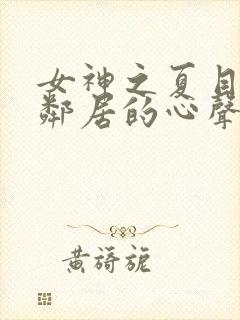 女神之夏目
鄰居的心聲
黃旖旎